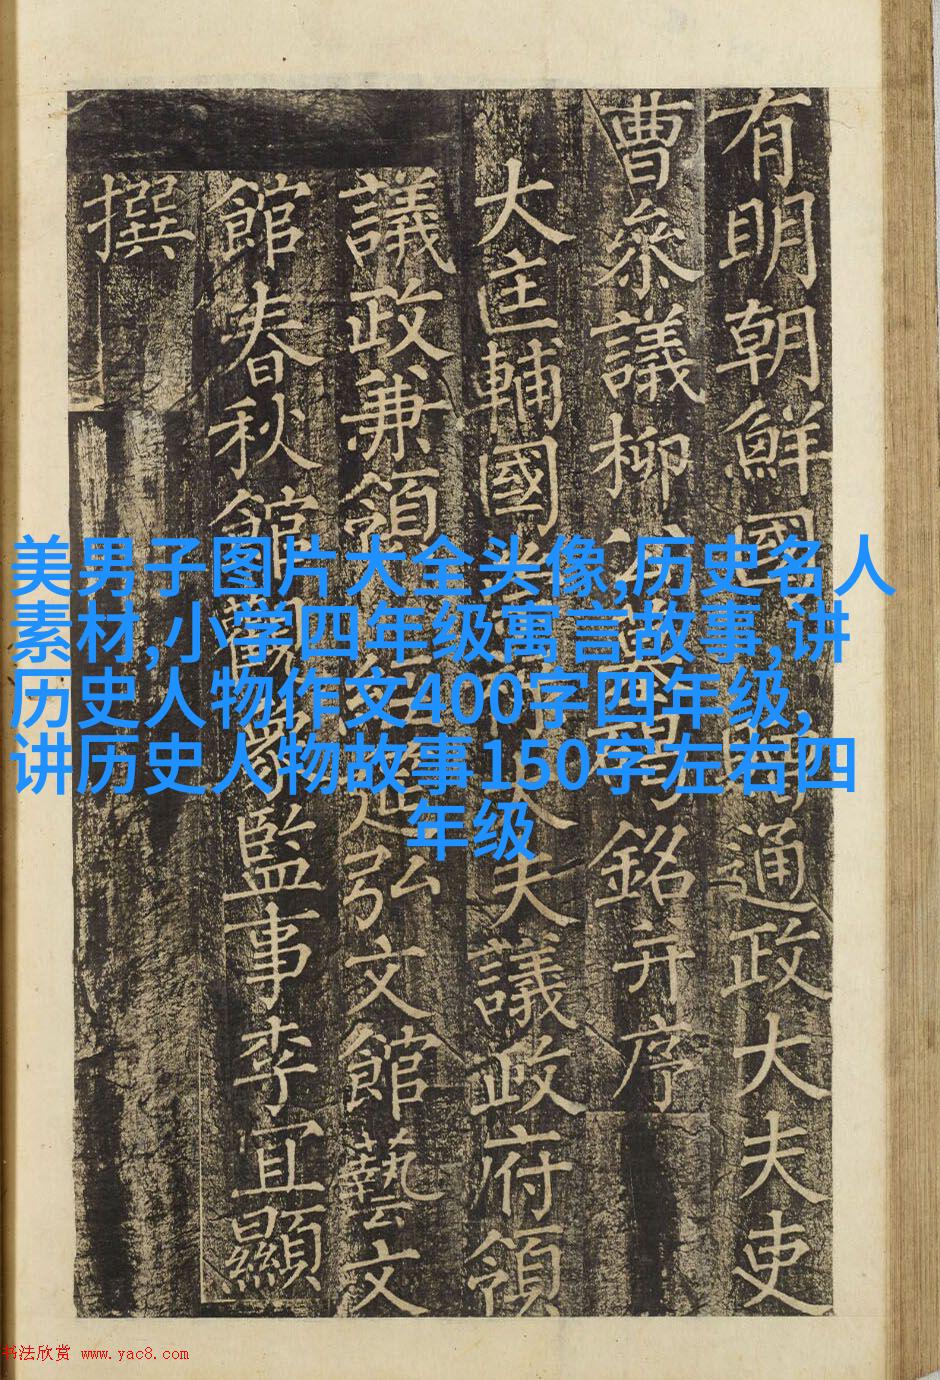 有明朝鮮國通政大夫吏
曹參議柳公墓碣銘并序
大匡輔國崇祿大夫議政府領
議政兼領經筵弘文館藝文
館春秋館觀象監事李宜顯
撰
美男子图片大全头像,历史名人
素材,小学四年级寓言故事,讲
历史人物作文400字四年级,
讲历史人物故事150字左右四
年级
书法欣赏 www.yac8.com